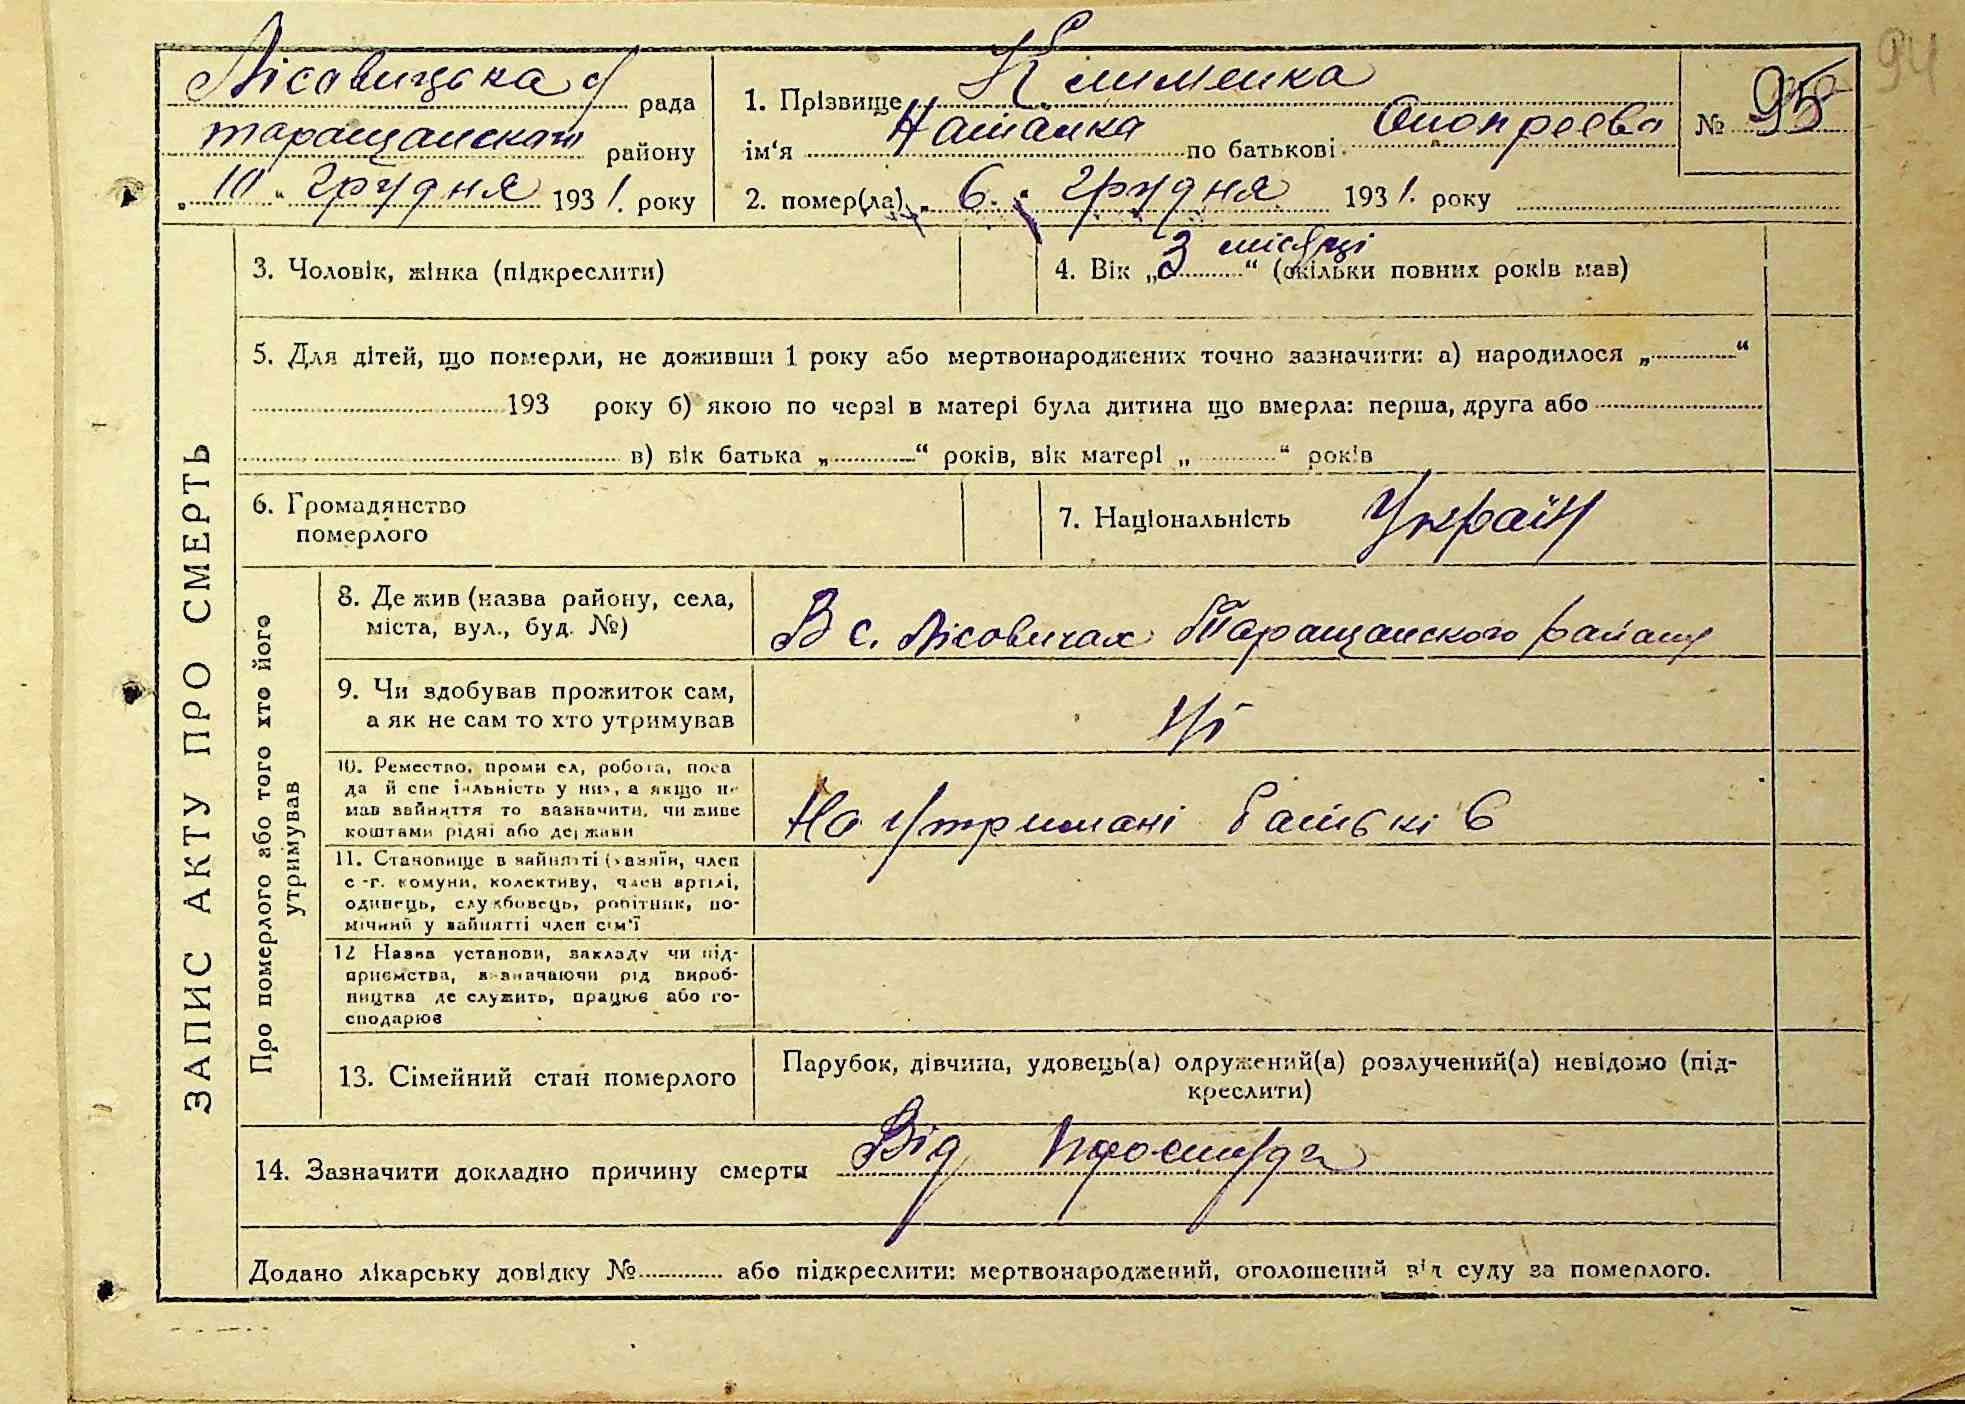 94
Лісовицька с/ рада
таращанского району
„ 10 “ грудня 1931. року
1. Прізвище Клименка
ім‘я Наталка по батькові Онопреева
№ 95
2. помер(ла) „ 6. “ грудня 1931. року
ЗАПИС АКТУ ПРО СМЕРТЬ
3. Чоловік, жінка (підкреслити)
4. Вік „ 3 місяці “ (скільки повних років мав)
5. Для дітей, що померли, не доживши 1 року або мертвонароджених точно зазначити: а) народилося „ “
193 року б) якою по черзі в матері була дитина що вмерла: перша, друга або
в) вік батька „ “ років, вік матері „ “ років
6. Громадянство
померлого
7. Національність Україн
Про померлого або того хто його
утримував
8. Де жив (назва району, села,
міста, вул., буд. №)
В с. Лісовичах Таращанского району
9. Чи здобував прожиток сам,
а як не сам то хто утримував
Ні
10. Ремество, промисел, робота, поса
да й спеціяльність у них, а якщо не
мав зайняття то зазначити, чи живе
коштами рідні або держави
На утримані батьків
11. Становище в зайнятті (хазяїн, член
с-г. комуни, колективу, член артілі,
одинець, службовець, робітник, по-
мічний у зайнятті член сім‘ї
12 Назва установи, закладу чи під-
приємства, зазначаючи рід вироб-
ництва де служить, працює або го-
сподарює
13. Сімейний стан померлого
Парубок, дівчина, удовець(а) одружений(а) розлучений(а) невідомо (під-
креслити)
14. Зазначити докладно причину смерти Від простуда
Додано лікарську довідку № або підкреслити: мертвонароджений, оголошений від суду за померлого.